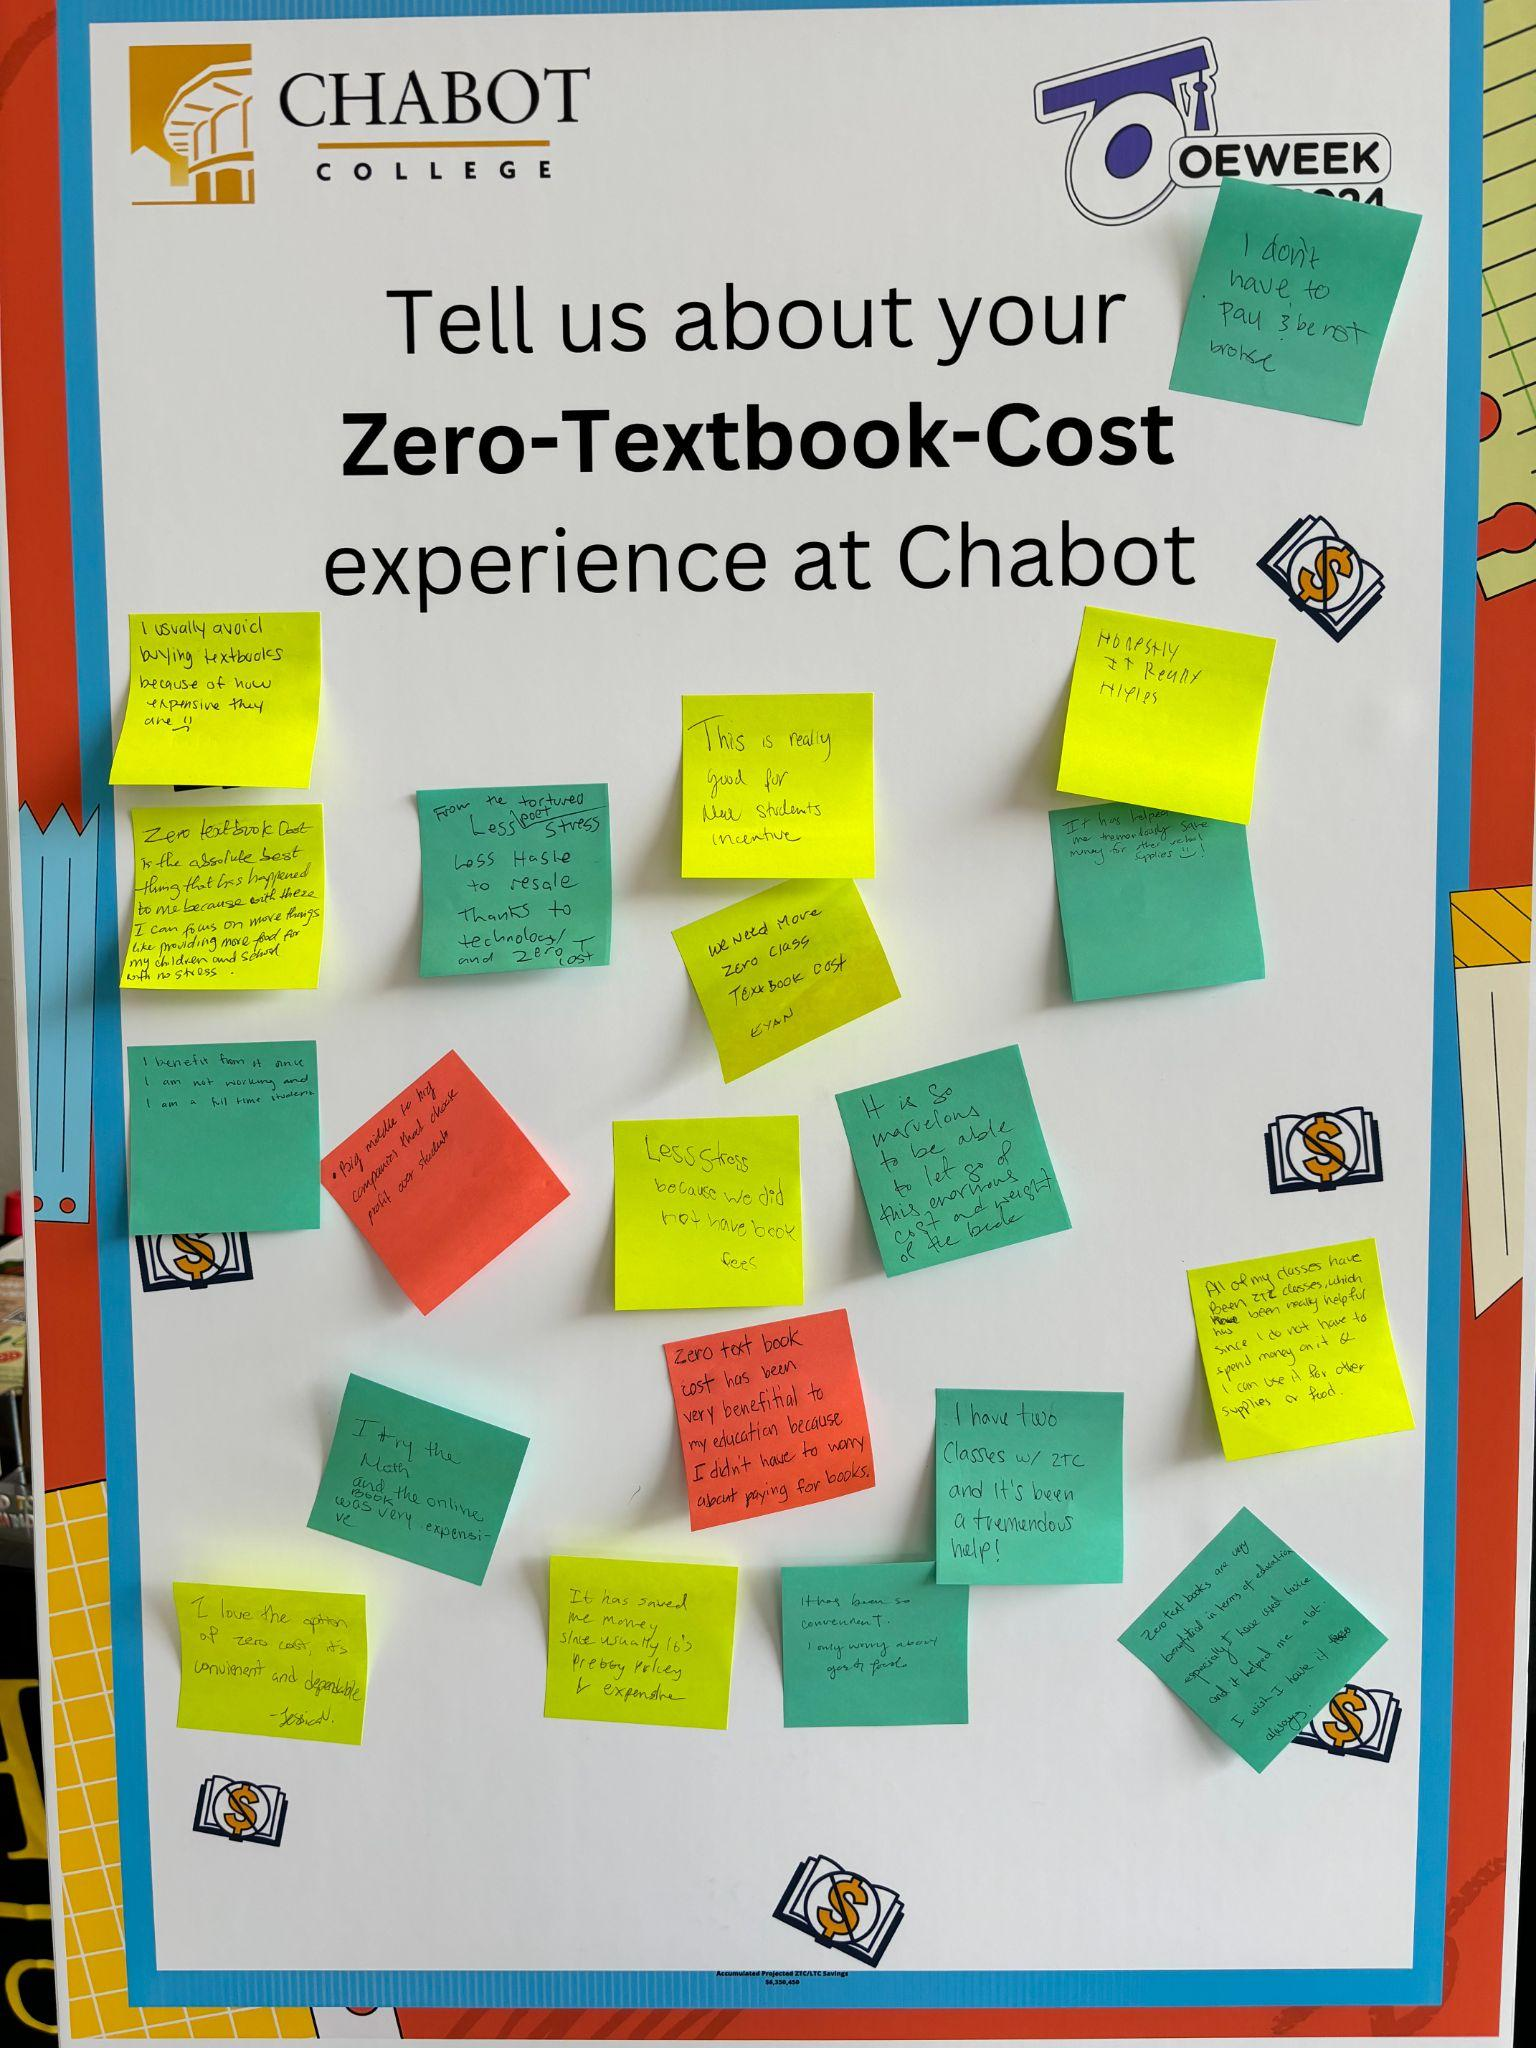 CHABOT
COLLEGE
OEWEEK
I don't
have to
pay & be not
broke
Tell us about your
Zero-Textbook-Cost
experience at Chabot
I usually avoid
buying textbooks
because of how
expensive they
are
This is really
good for
New students
incentive
Honestly
It Really
Zero textbook Cost
is the absolute best
thing that has happened
to me because with these
I can focus on more things
like providing more food for
my children and school
with no stress.
From the tortured
poet
Less Stress
Less Hasle
to resale
Thanks to
technology/
and Zero T
cost
We Need More
Zero Class
Textbook Cost
EYAN
It has helped
me tremendously save
money for other school
supplies !
I benefit from it since
I am not working and
I am a full time student
• Big middle to big
companies that choose
profit over students
Less stress
because we did
not have book
fees
It is so
marvelous
to be able
to let go of
this enormous
cost and weight
of the book
All of my classes have
Been ZTC classes, which
has been really helpful
since I do not have to
spend money on it &
I can use it for other
supplies or food.
zero text book
cost has been
very benefitial to
my education because
I didn't have to worry
about paying for books.
I try the
Math
and the online
BOOK
was very expensi-
ve
I have two
Classes w/ ZTC
and it's been
a tremendous
help!
I love the option
of zero cost, it's
convinient and dependable
-Jessica N.
It has saved
me money
since usually it's
pretty pricey
& expensive
It has been so
convenient.
I only worry about
gas & food.
Zero text books are very
benefitial in terms of education
especially I have used twice
and it helped me a lot.
I wish I have it
always.
Accumulated Projected ZTC/LTC Savings
$6,350,450